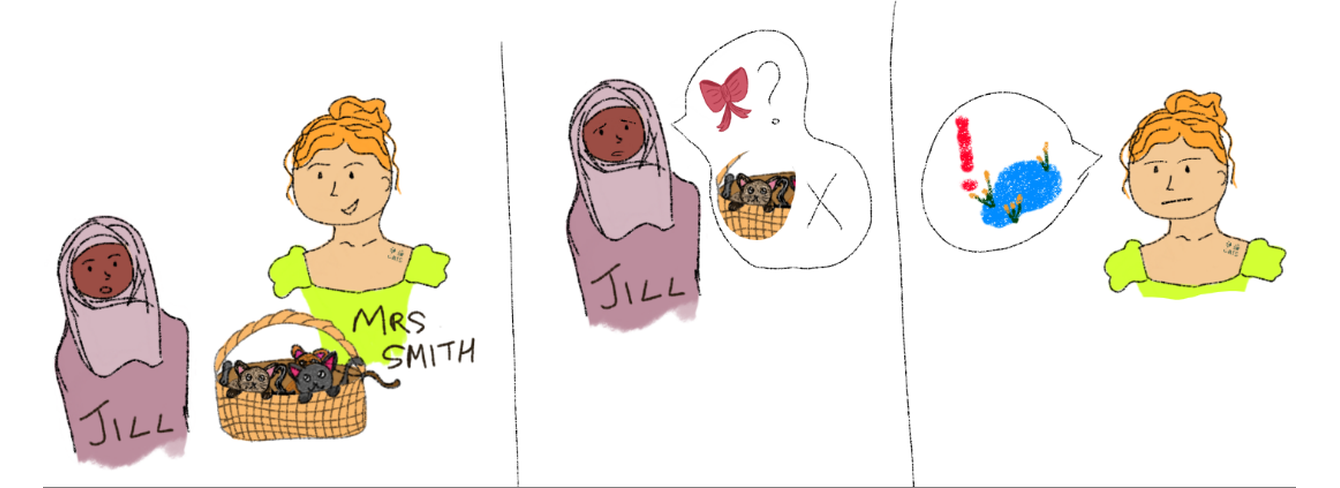 JILL
MRS
SMITH
JILL
?
X
!